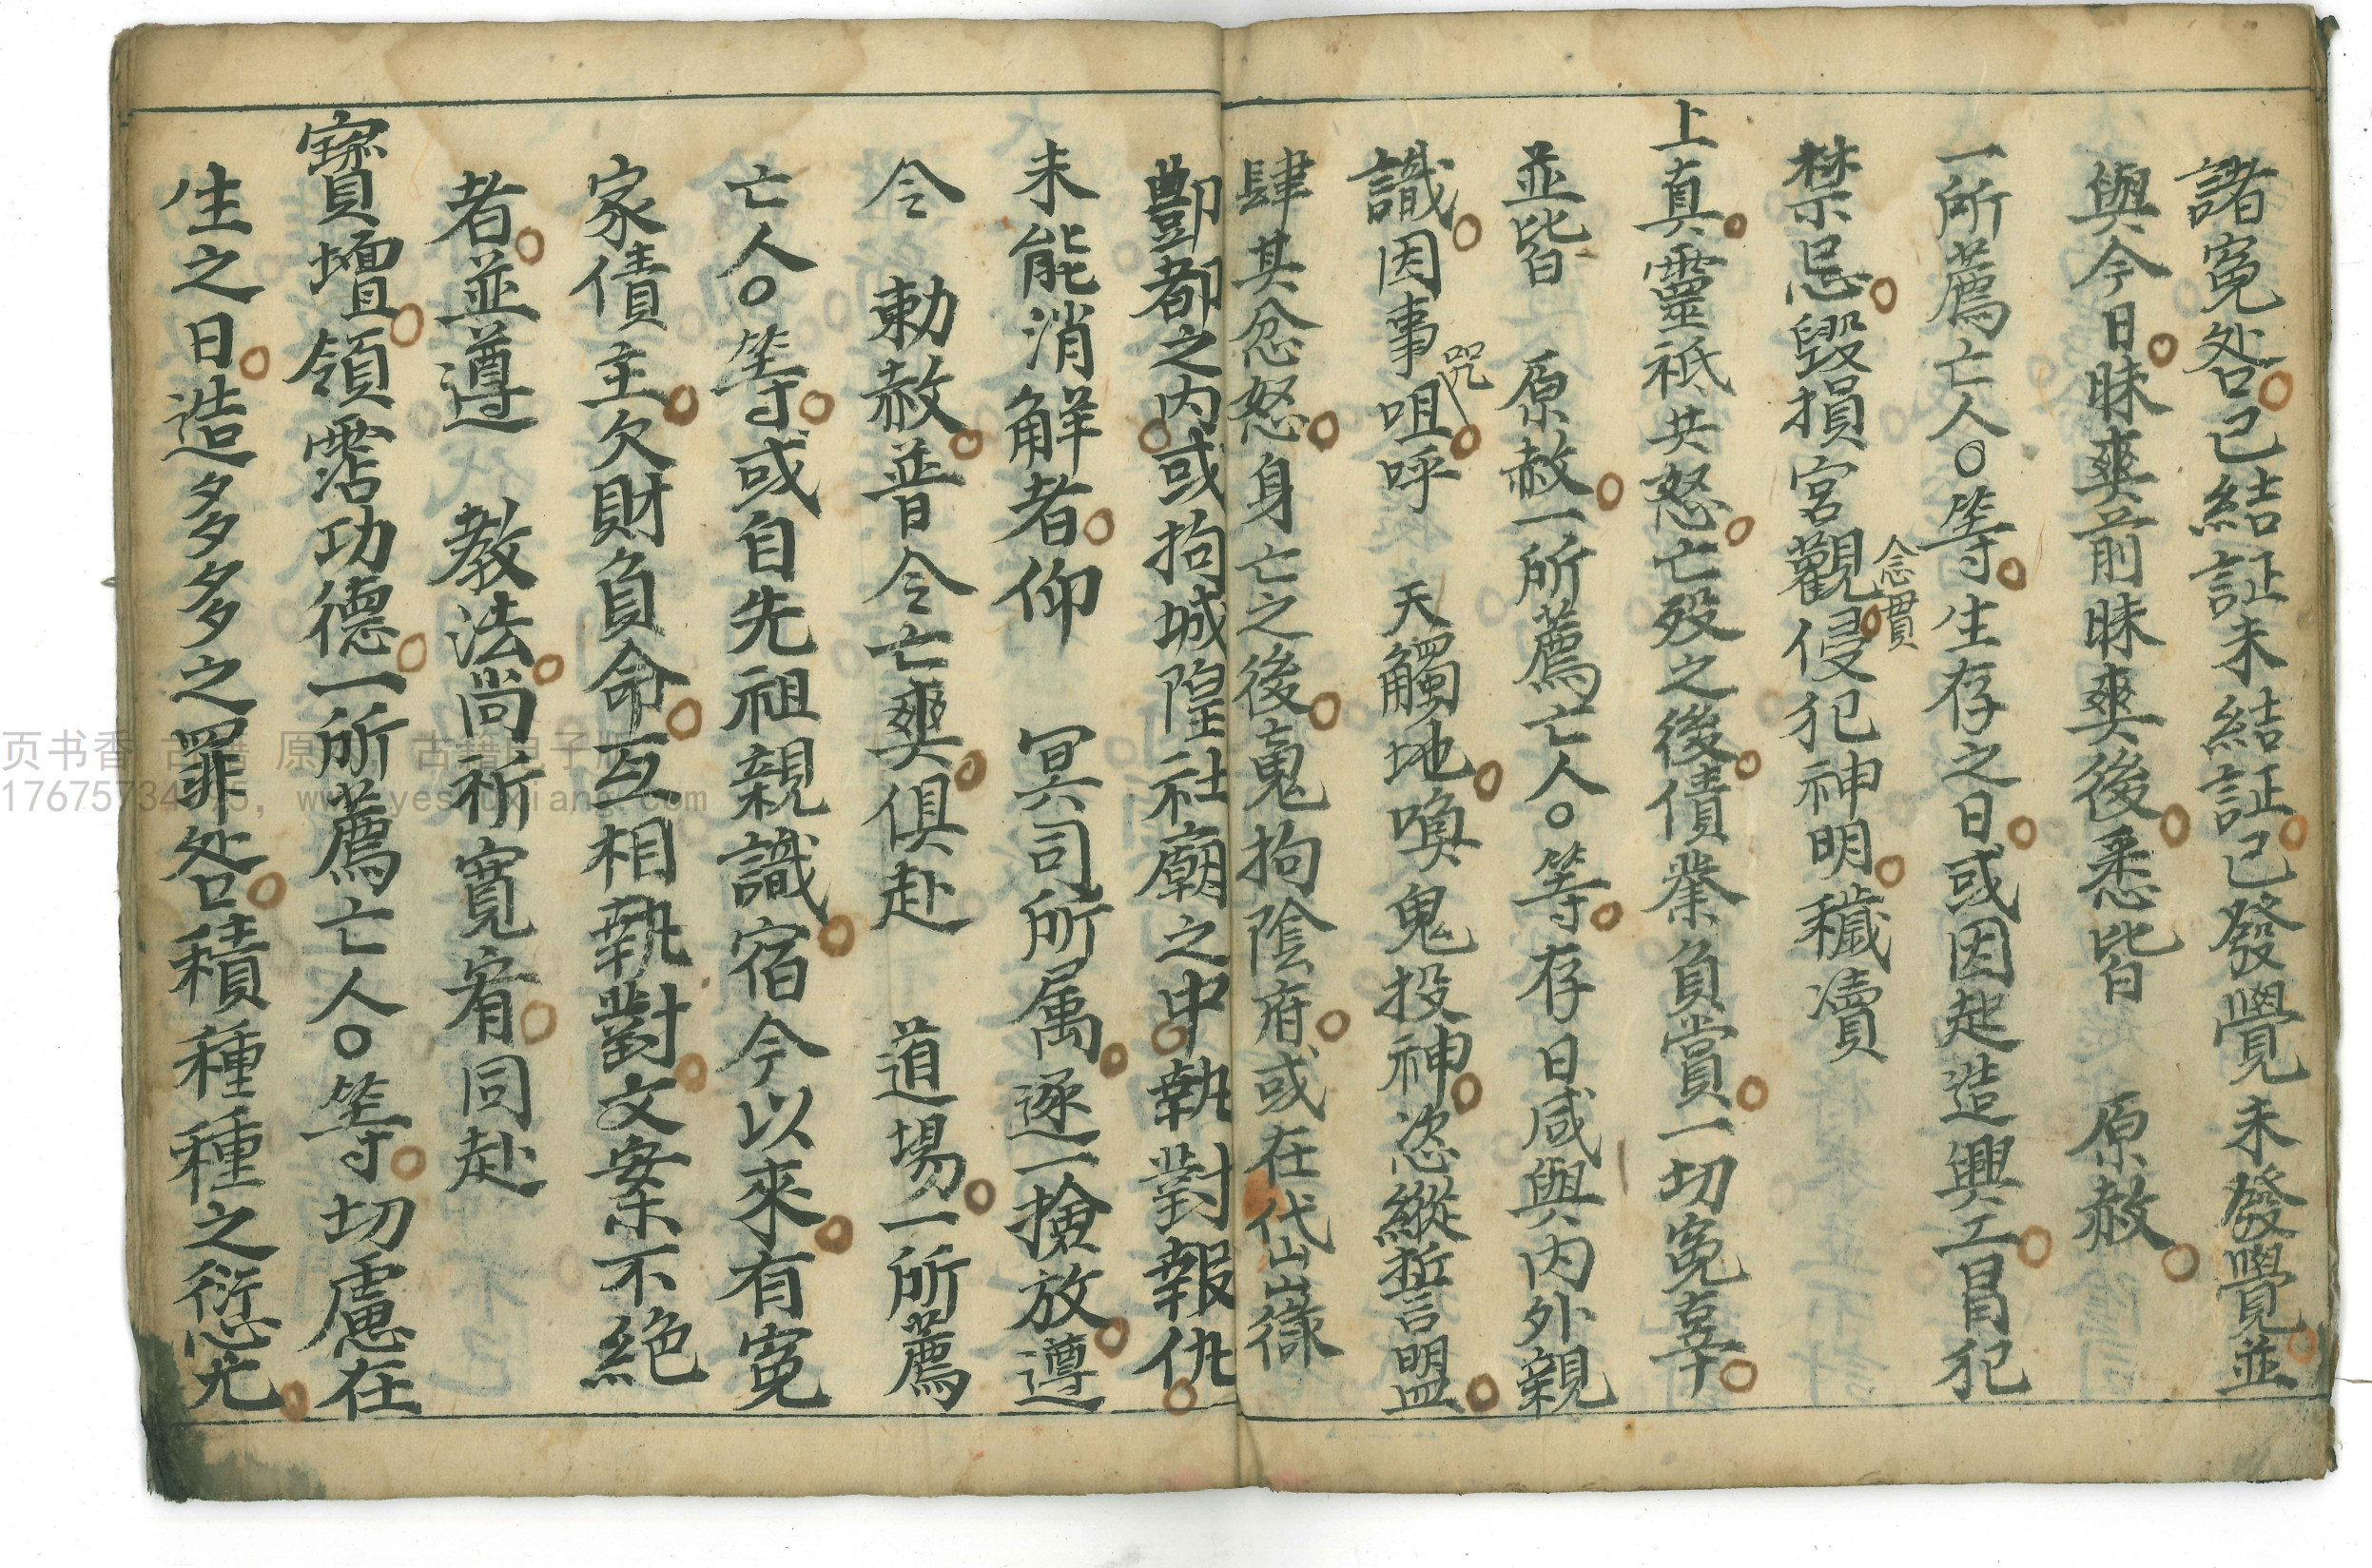 諸寃咎已結証未結証已發覺未發覺並
與今日昧爽前昧爽後悉皆　原赦
一所薦亡人○等生存之日或因起造興工冒犯
禁忌毀損宮觀侵犯神明穢瀆
念貫
上真靈祇共怒亡殁之後債業負賞一切寃辜
並皆　原赦一所薦亡人○等存日咸與内外親
識因事咀呼　天觸地喚鬼投神恣縱誓盟
咒
肆其忿怒身亡之後䰟拘陰府或在代山
酆都之内或拘城隍社廟之中執對報仇
未能消解者仰　冥司所属逐一撿放遵
令　勅赦普令亡爽俱赴　道場一所薦
亡人○等或自先祖親識宿今以來有寃
家債主欠財負命互相執對文案不絶
者並遵　教法尚祈寬宥同赴
寳壇領霑功德一所薦亡人○等切慮在
生之日造多多之罪咎積種種之愆尤
页书香 古籍 原 古籍电子版